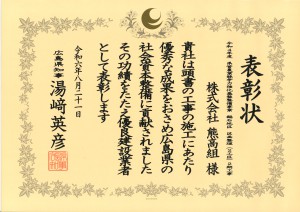 表彰状
株式会社 熊高組 様
貴社は頭書の工事の施工にあたり
優秀な成果をおさめ広島県の
社会資本整備に貢献されました
その功績をたたえ優良建設業者
として表彰します
令和六年八月二十一日
広島県知事 湯﨑英彦